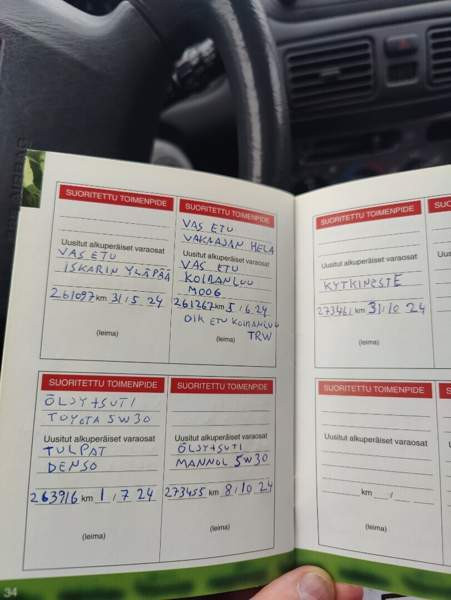 SUORITETTU TOIMENPIDE
Uusitut alkuperäiset varaosat
VAS ETU
ISKARIN YLÄPÄÄ
261097 km 31/5 24
(leima)
SUORITETTU TOIMENPIDE
VAS ETU
VAKAAJAN HELA
Uusitut alkuperäiset varaosat
VAS ETU
KOIRANLUU
MOOG
261267 km 5/6 24
OIK ETU KOIRANLUU
(leima) TRW
SUORITETTU TOIMENPIDE
Uusitut alkuperäiset varaosat
KYTKINESTE
273461 km 31/10 24
(leima)
SUORITETTU TOIMENPIDE
ÖLJY+SUTI
TOYOTA 5W30
Uusitut alkuperäiset varaosat
TULPAT
DENSO
263916 km 1/7 24
(leima)
SUORITETTU TOIMENPIDE
Uusitut alkuperäiset varaosat
ÖLJY+SUTI
MANNOL 5W30
273455 km 8/10 24
(leima)
SUORITETTU TOIMENPIDE
Uusitut alkuperäiset varaosat
km /
(leima)
34